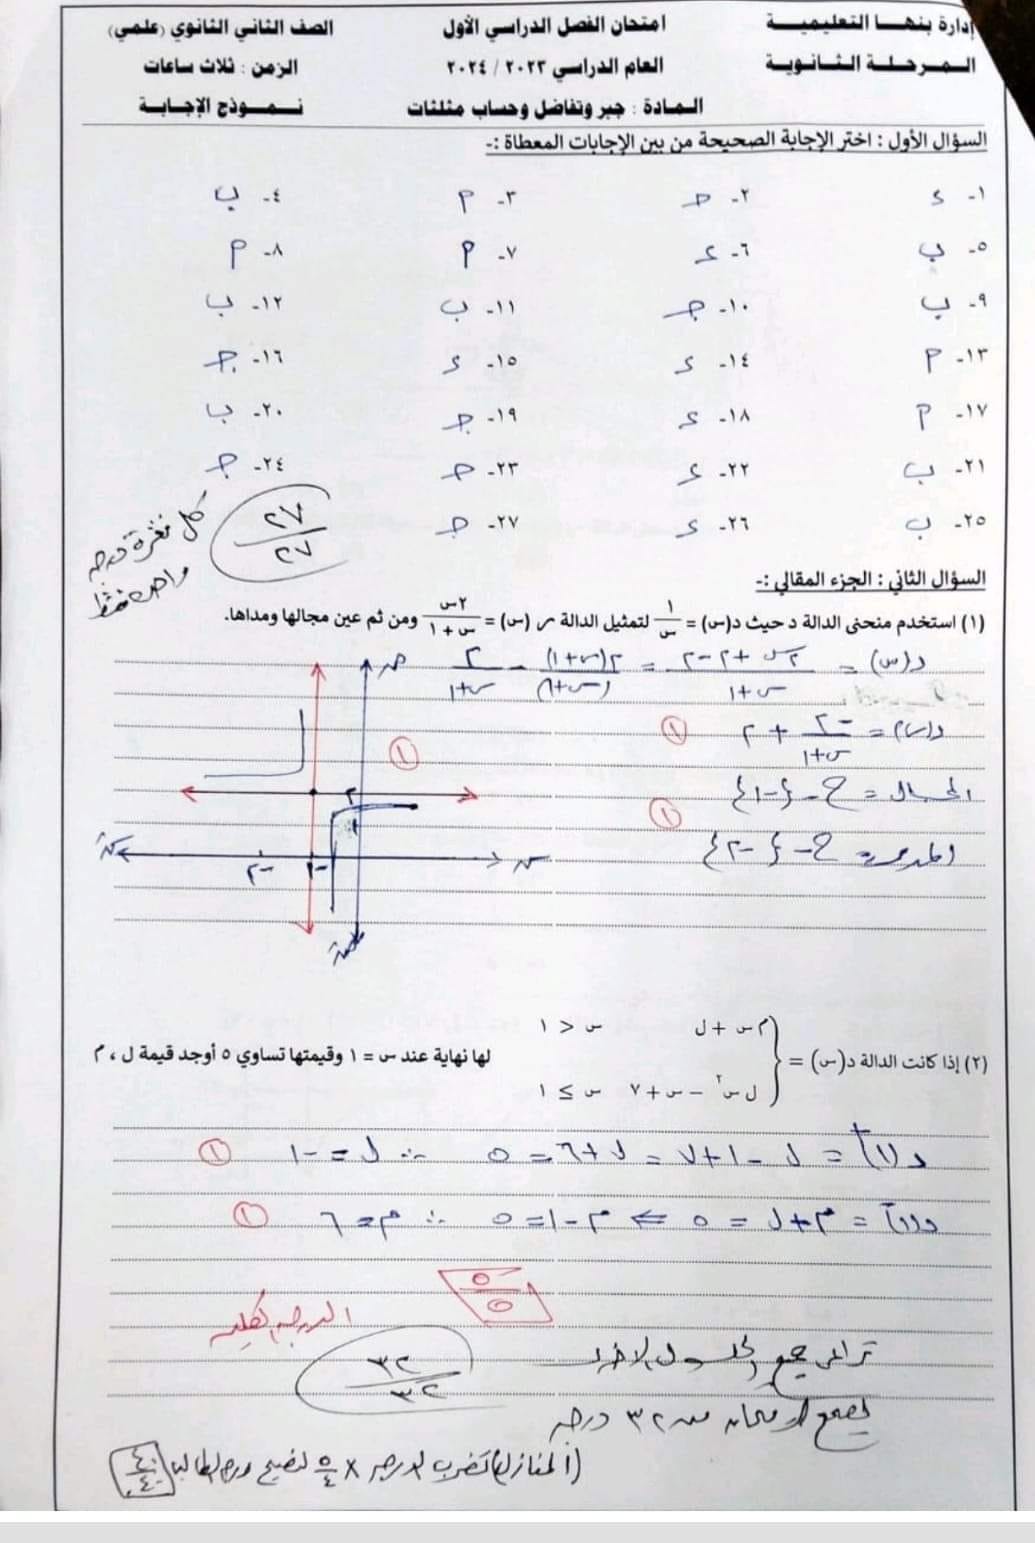 إدارة بنها التعليمية امتحان الفصل الدراسي الأول الصف الثاني الثانوي (علمي)
المرحلة الثانوية العام الدراسي ٢٠٢٣ / ٢٠٢٤ الزمن : ثلاث ساعات
المادة : جبر وتفاضل وحساب مثلثات نموذج الإجابة
السؤال الأول : اختر الإجابة الصحيحة من بين الإجابات المعطاة :-
١- ء ٢- حـ ٣- م ٤- ب
٥- ب ٦- ء ٧- م ٨- م
٩- ب ١٠- جـ ١١- ب ١٢- ب
١٣- م ١٤- ء ١٥- ء ١٦- جـ
١٧- م ١٨- ء ١٩- جـ ٢٠- ب
٢١- ب ٢٢- ء ٢٣- حـ ٢٤- جـ
٢٥- ب ٢٦- ء ٢٧- جـ
٢٧/٢٧
كل فقرة درجة
واحدة فقط
السؤال الثاني : الجزء المقالي :-
(١) استخدم منحنى الدالة د حيث د(س) = ١/س لتمثيل الدالة ر (س) = ٢س/(س + ١) ومن ثم عين مجالها ومداها.
د(س) = (٢س + ٢ - ٢)/(س+١) = ٢(س+١)/(س+١) - ٢/(س+١)
د(س) = -٢/(س+١) + ٢ ١
المجال = ح - {-١} ١
المدى = ح - {-٢}
ص ١ ٢ ١ -١ -٢ س سَ صَ
(٢) إذا كانت الدالة د(س) = { م س + ل س > ١
ل س٢ - س + ٧ س ≤ ١
لها نهاية عند س = ١ وقيمتها تساوي ٥ أوجد قيمة ل ، م
د(١)+ = ل - ١ + ٧ = ل + ٦ = ٥ ∴ ل = -١ ١
د(١)- = م + ل = ٥ ⇐ م - ١ = ٥ ∴ م = ٦ ١
٥/٥
الدرجة الكلية
٣٢/٣٢
تراعى جميع الحلول الأخرى
ليصبح الامتحان من ٣٢ درجة
(المنازل) تضرب الدرجة × ٥/٤ لتصبح درجة الطالب ٤٠/٤٠